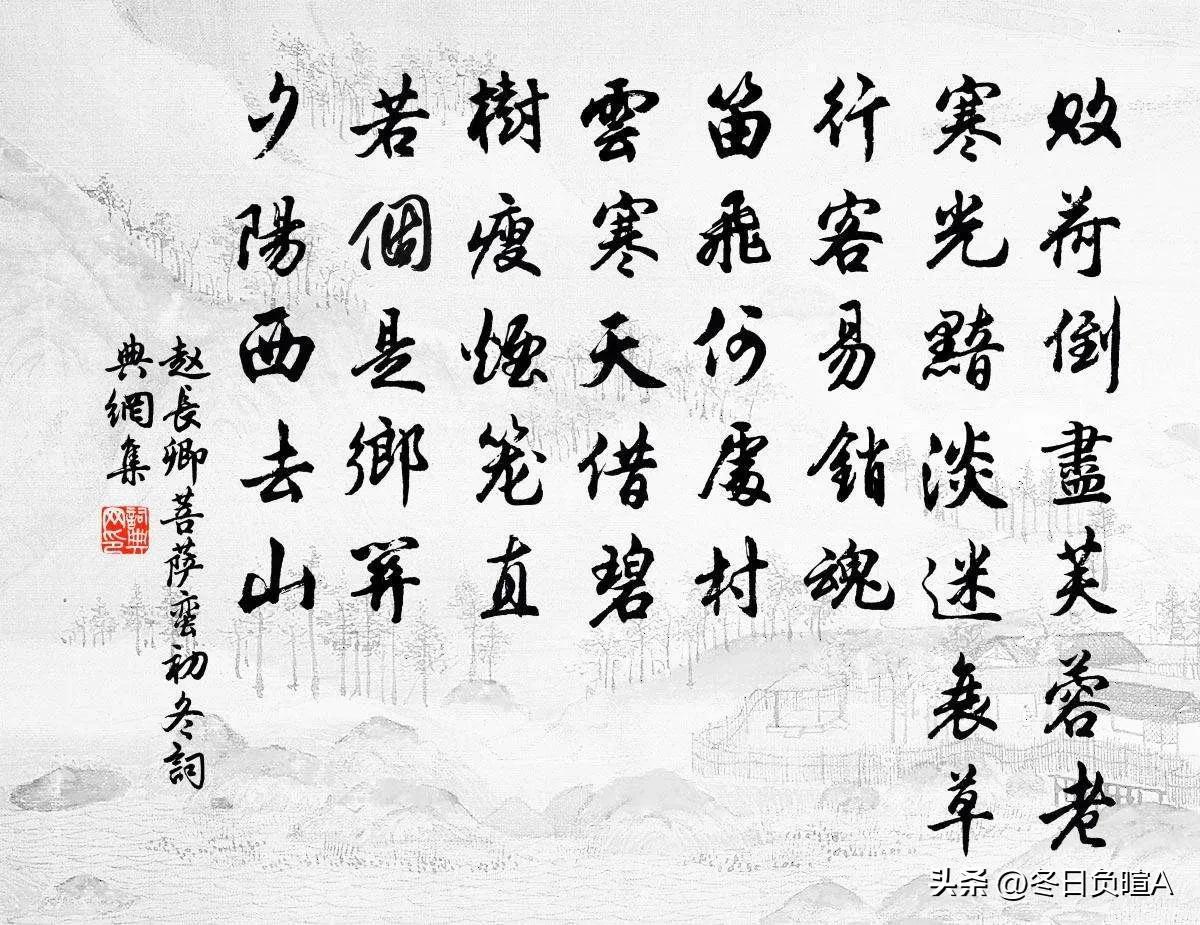 敗荷倒盡芙蓉老
寒光黯淡迷衰草
行客易銷魂
笛飛何處村
雲寒天借碧
樹瘦煙笼直
若個是鄉關
夕陽西去山
赵長卿菩萨蛮初冬詞
典網集
詞典网印
头条 @冬日负暄A